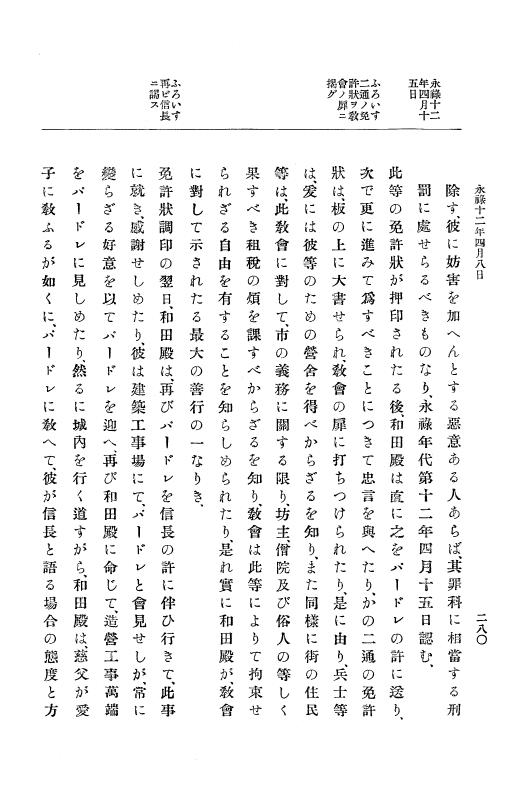 永祿十二年四月八日
二八〇
永祿十二
年四月十
五日
ふろいす
二通ノ免
許狀ヲ敎
會ノ扉ニ
揭グ
ふろいす
再ビ信長
ニ謁ス
除す、彼に妨害を加へんとする惡意ある人あらば、其罪科に相當する刑
罰に處せらるべきものなり、永祿年代第十二年四月十五日認む、
此等の免許狀が押印されたる後、和田殿は直に之をパードレの許に送り、
次で更に進みて爲すべきことにつきて忠言を與へたり、かの二通の免許
狀は、板の上に大書せられ、敎會の扉に打ちつけられたり、是に由り、兵士等
は、爰には彼等のための營舍を得べからざるを知り、また同樣に街の住民
等は、此敎會に對して、市の義務に關する限り、坊主、僧院及び俗人の等しく
果すべき租稅の煩を課すべからざるを知り、敎會は此等によりて拘束せ
られざる自由を有することを知らしめられたり、是れ實に和田殿が、敎會
に對して示されたる最大の善行の一なりき、
免許狀調印の翌日、和田殿は、再びパードレを信長の許に伴ひ行きて、此事
に就き、感謝せしめたり、彼は建築工事場にて、パードレと會見せしが、常に
變らざる好意を以てパードレを迎へ、再び和田殿に命じて、造營工事萬端
をパードレに見しめたり、然るに城內を行く道すがら、和田殿は、慈父が愛
子に敎ふるが如くに、パードレに敎へて、彼が信長と語る場合の態度と方